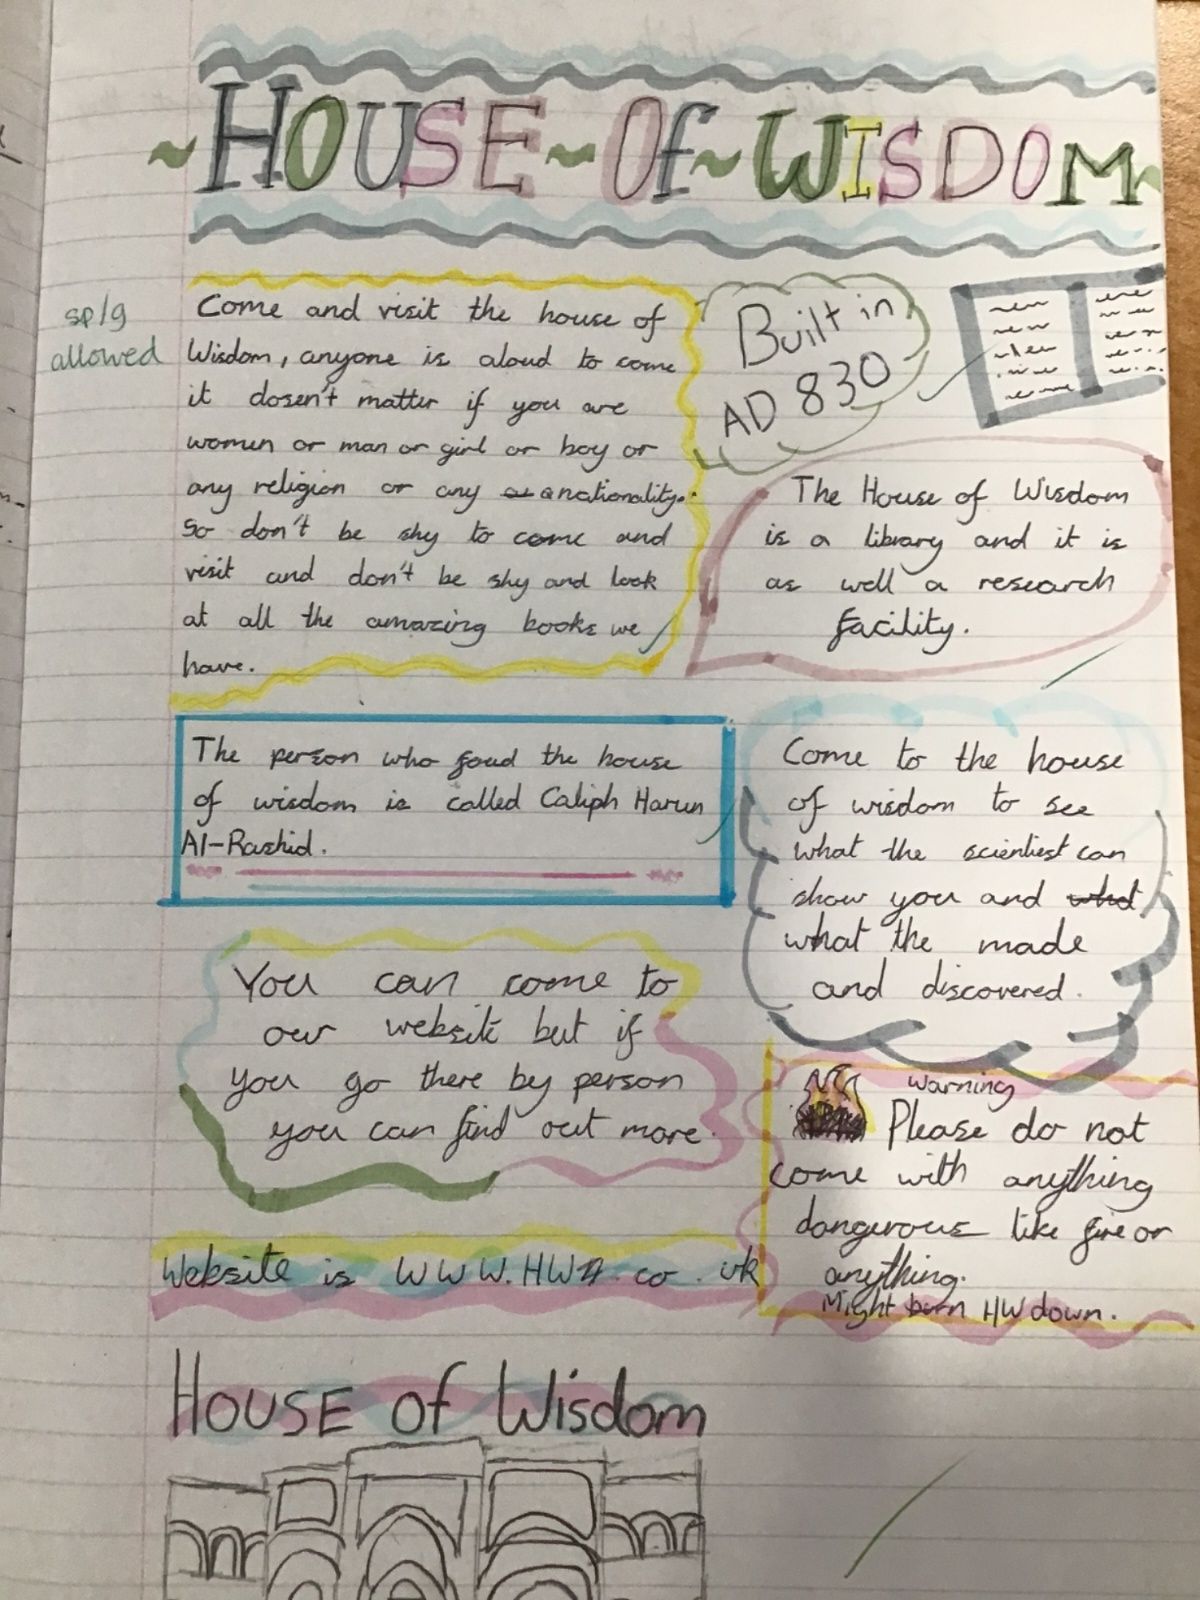 ~HOUSE~Of~WISDOM~
sp/g
allowed
Come and visit the house of
Wisdom, anyone is aloud to come
it dosen't matter if you are
women or man or girl or boy or
any religion or any a nationality.
So don't be shy to come and
visit and don't be shy and look
at all the amazing books we
have.
Built in
AD 830
The House of Wisdom
is a library and it is
as well a research
facility.
The person who foud the house
of wisdom is called Caliph Harun
Al-Rashid.
Come to the house
of wisdom to see
what the scientiest can
show you and what
what the made
and discovered.
You can come to
our website but if
you go there by person
you can find out more.
warning
Please do not
come with anything
dangerous like fire or
anything.
Might burn HW down.
Website is WWW.HW.co.uk
HOUSE of Wisdom